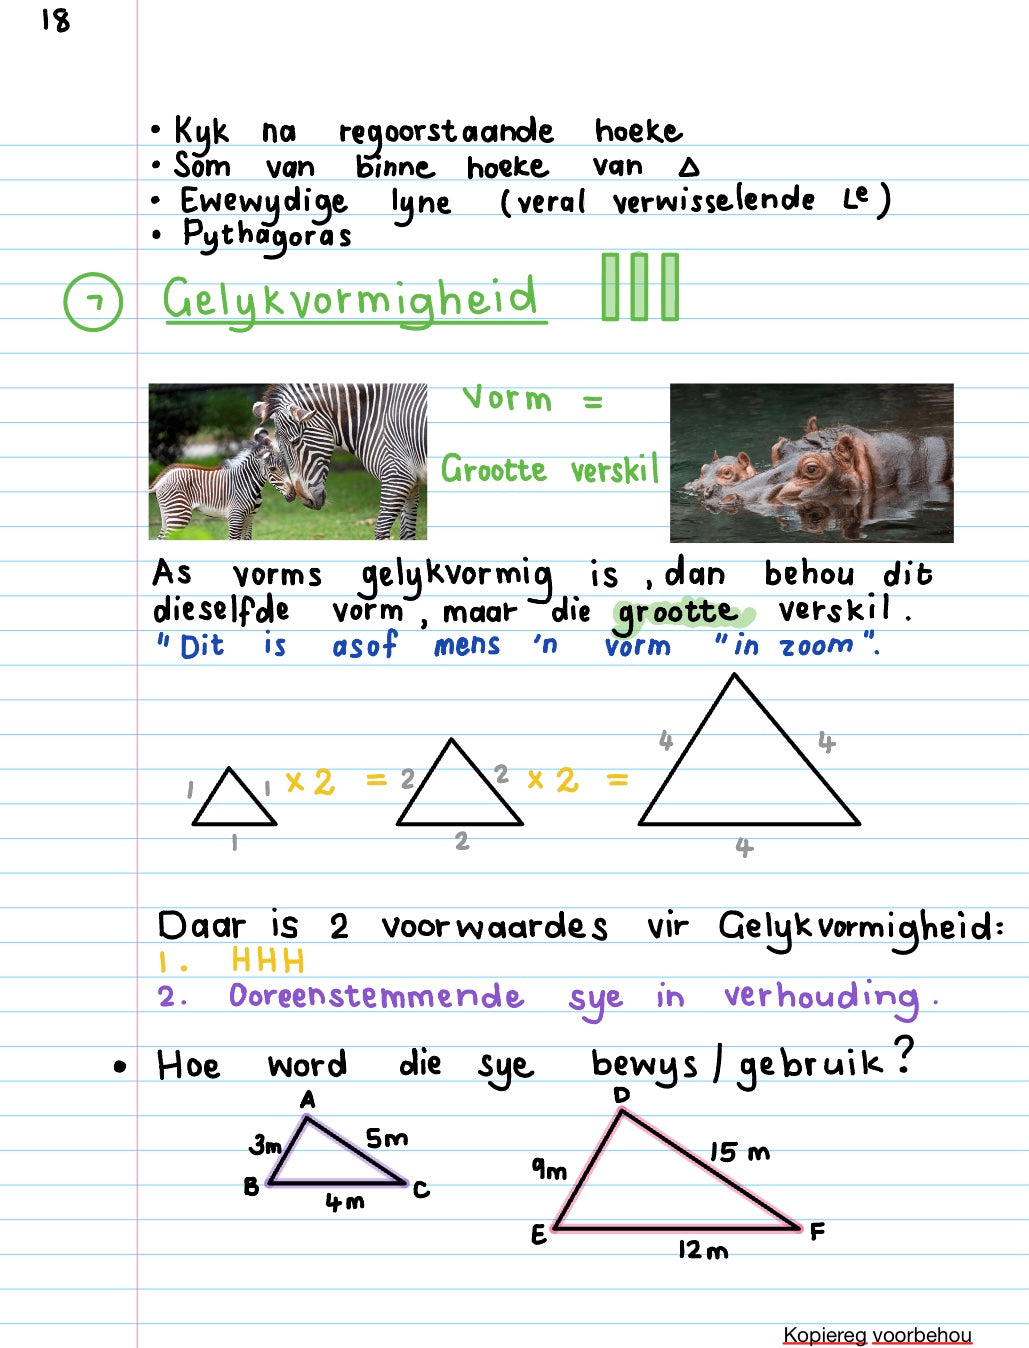 18
• Kyk na regoorstaande hoeke
• Som van binne hoeke van Δ
• Ewewydige lyne (veral verwisselende Lᵉ)
• Pythagoras
7 Gelykvormigheid
Vorm =
Grootte verskil
As vorms gelykvormig is, dan behou dit
dieselfde vorm, maar die grootte verskil.
"Dit is asof mens 'n vorm "in zoom".
1 1 × 2 = 2 2 × 2 = 4 4
1 2 4
Daar is 2 voorwaardes vir Gelykvormigheid:
1. HHH
2. Ooreenstemmende sye in verhouding.
• Hoe word die sye bewys / gebruik?
A D
3m 5m 9m 15 m
B 4m C E 12m F
Kopiereg voorbehou